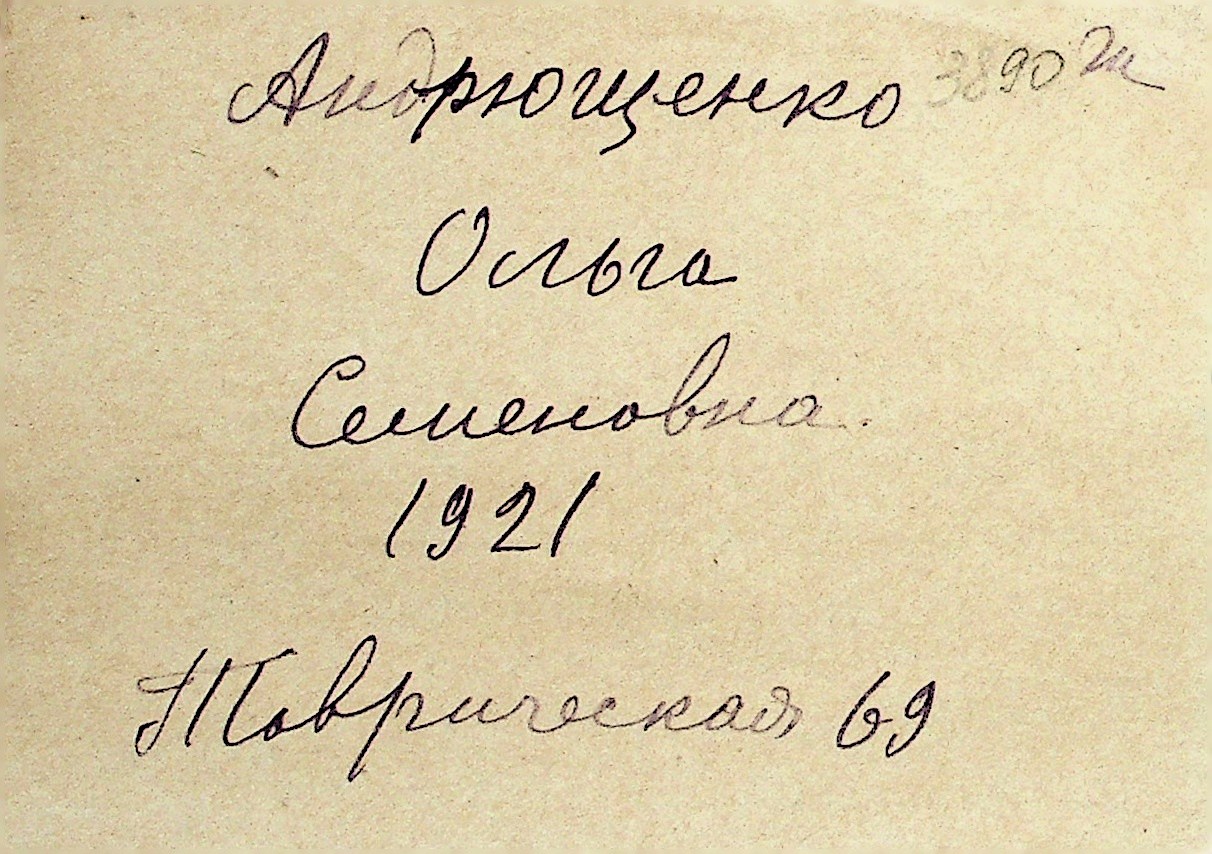 Андрющенко 3890 Ж
Ольга
Семеновна.
1921
Таврическая 69